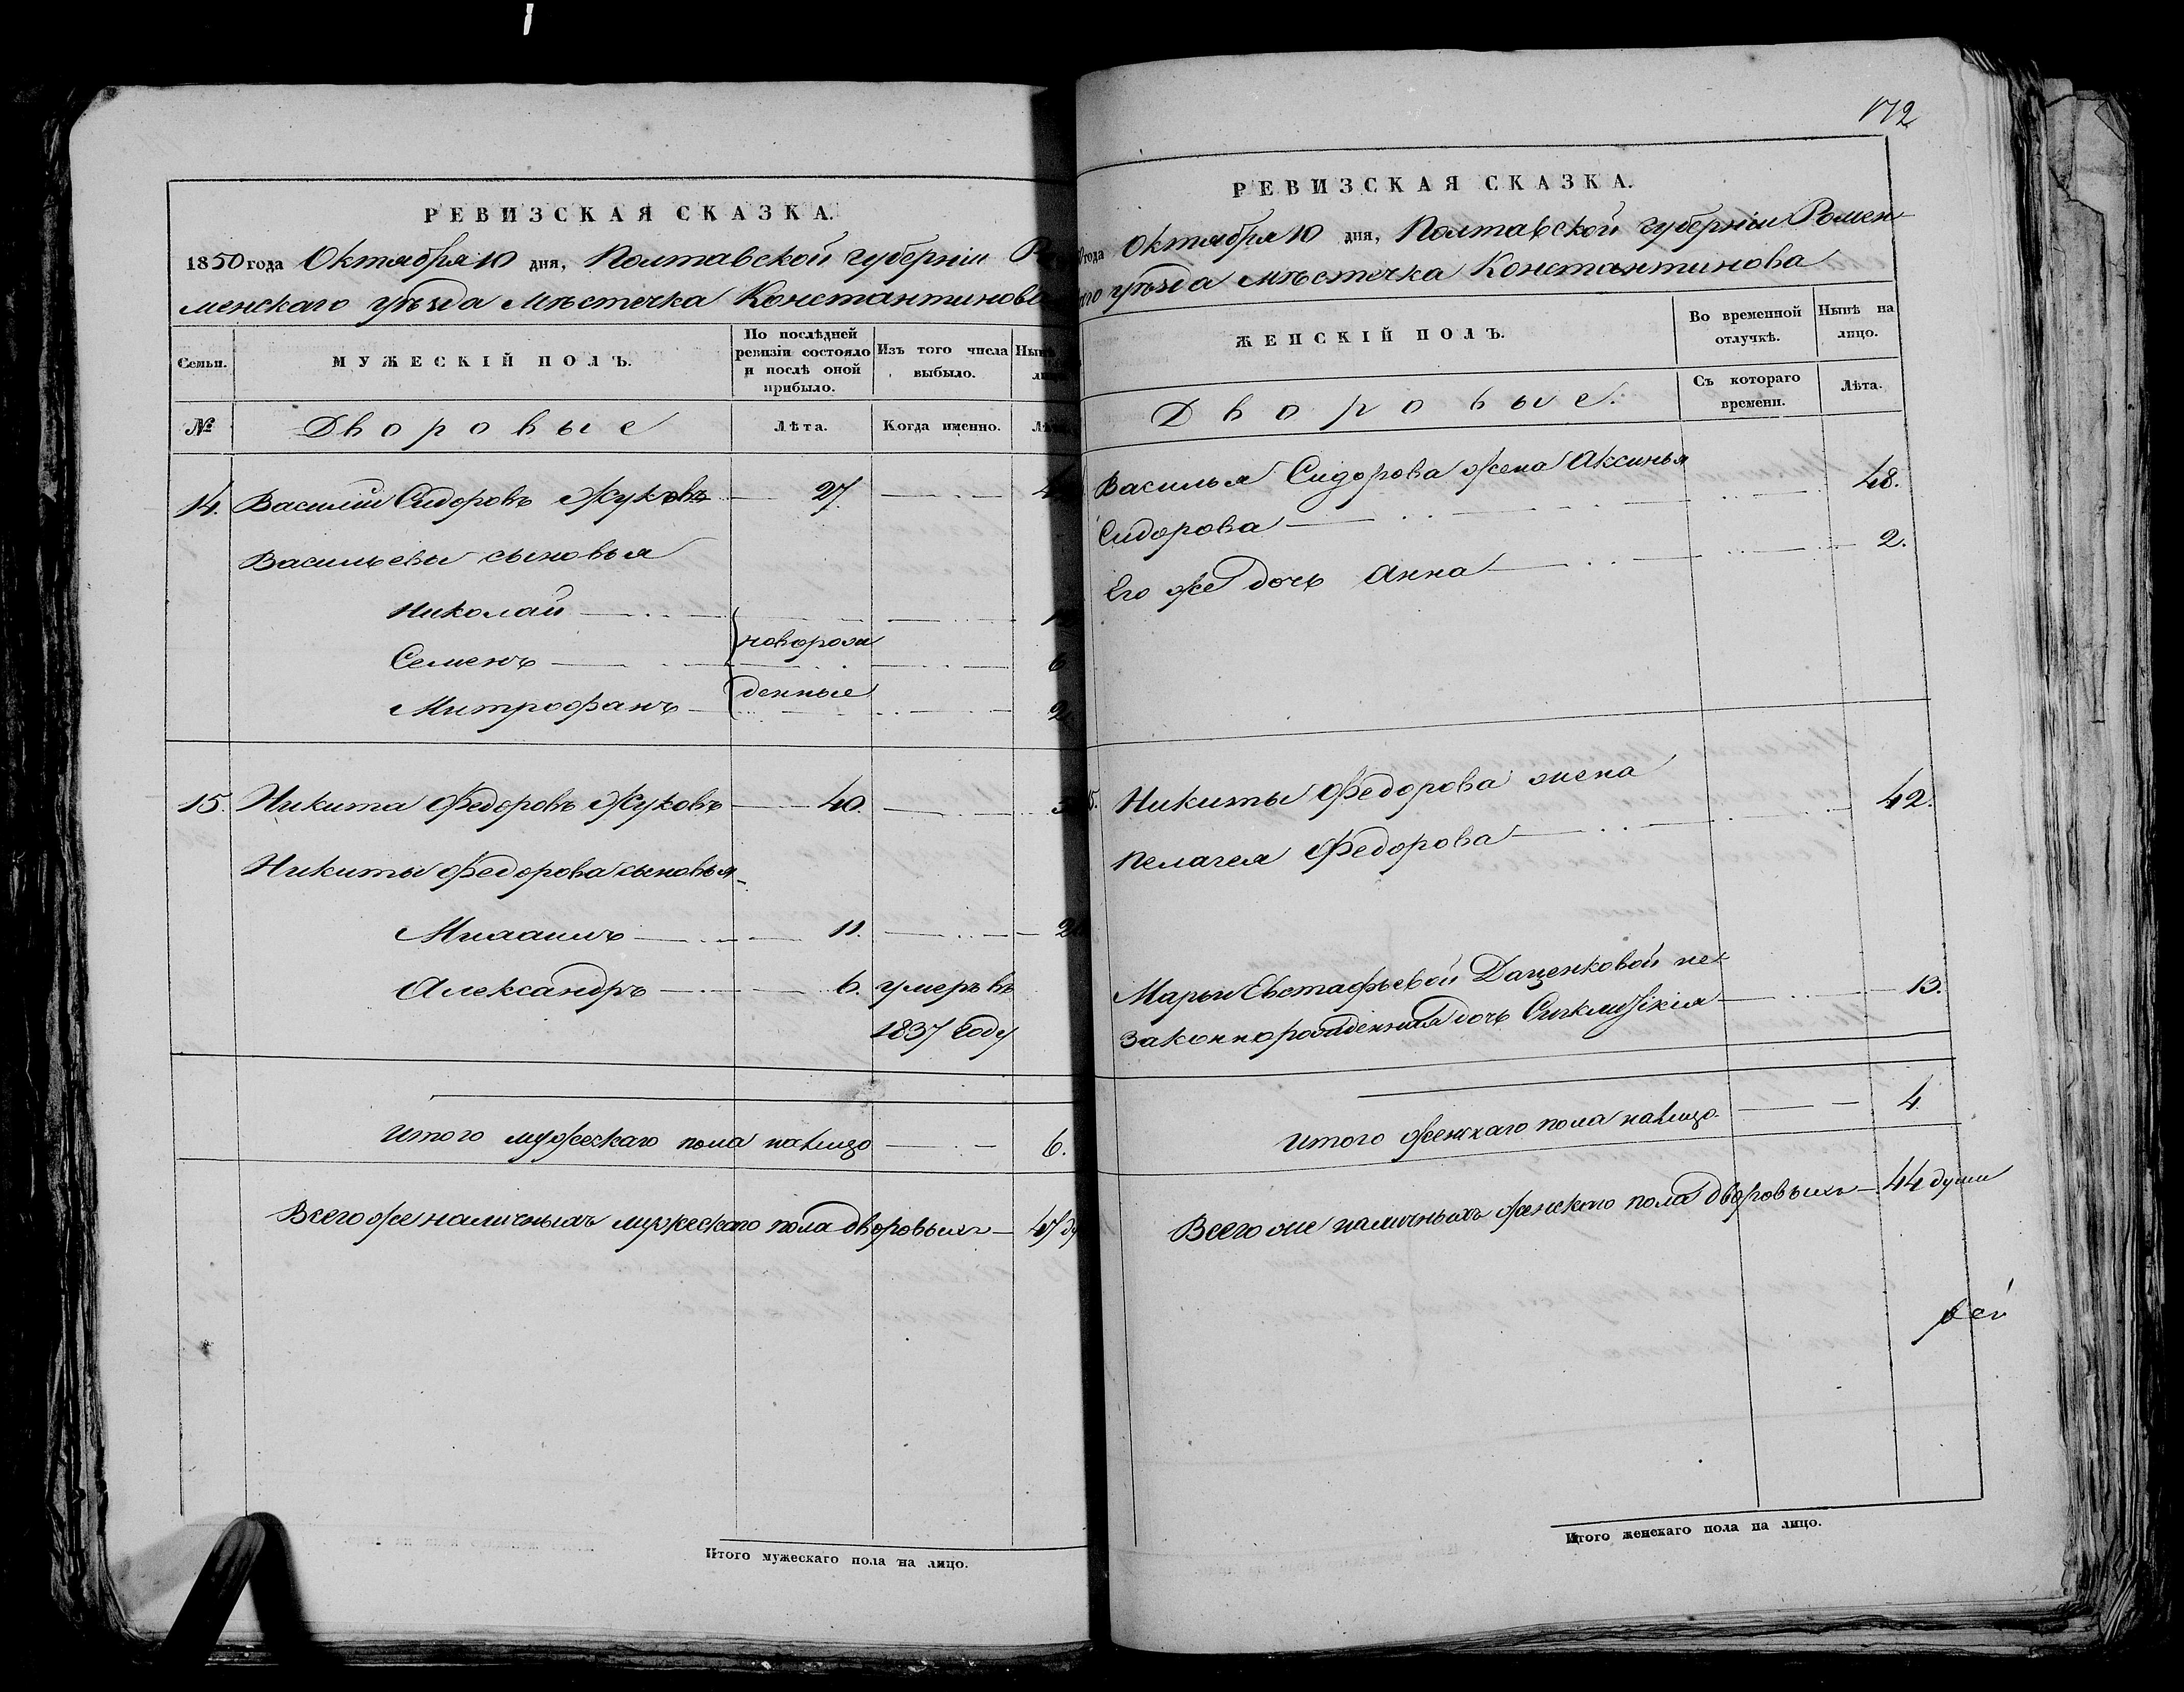 РЕВИЗСКАЯ СКАЗКА.
1850 года Октября 10 дня, Полтавской губерніи Ро
менскаго уѣзда Мѣстечка Константинова
Семьи.
МУЖЕСКІЙ ПОЛЪ.
По послѣдней
ревизіи состояло
и послѣ оной
прибыло.
Изъ того числа
выбыло.
№
Дворовые
Лѣта.
Когда именно.
14. Василій Сидоровъ Жуковъ 27.
Васильевы сыновья
Николай
Семенъ новорож 6
Митрофанъ денные 2
15. Никита Федоровъ Жуковъ 40.
Никиты Федорова сыновья
Михаилъ 11.
Александръ 6. умеръ въ
1837 Году
Итого мужескаго пола на лицо 6.
Всего же наличныхъ мужескаго пола дворовыхъ 47
Итого мужескаго пола на лицо.
172
РЕВИЗСКАЯ СКАЗКА.
года Октября 10 дня, Полтавской губерніи Ромен-
уѣзда мѣстечка Константинова
ЖЕНСКІЙ ПОЛЪ.
Во временной
отлучкѣ.
Нынѣ на
лицо.
Дворовые.
Съ котораго
времени.
Лѣта.
Василья Сидорова жена Аксинья
Сидорова 48.
Его же дочь Анна 2.
Никиты Федорова жена
Пелагея Федорова 42.
Марьи Евстафьевой Даценковой не-
законнорожденная дочь 13.
Итого женскаго пола на лицо 4
Всего же наличныхъ женскаго пола дворовыхъ 44 души
Итого женскаго пола на лицо.